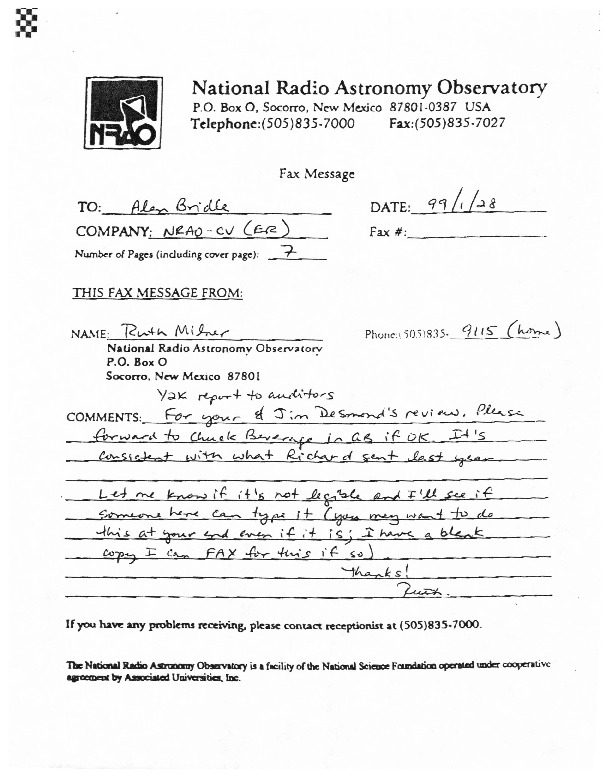 NRAO
National Radio Astronomy Observatory
P.O. Box O, Socorro, New Mexico 87801-0387 USA
Telephone:(505)835-7000 Fax:(505)835-7027
Fax Message
TO: Alan Bridle DATE: 99/1/28
COMPANY: NRAO-CV (ER) Fax #:
Number of Pages (including cover page): 7
THIS FAX MESSAGE FROM:
NAME: Ruth Milner Phone:(505)835- 9115 (home)
National Radio Astronomy Observatory
P.O. Box O
Socorro, New Mexico 87801
Y2K report to auditors
COMMENTS: For your & Jim Desmond's review. Please
forward to Chuck Beverage in GB if OK. It's
consistent with what Richard sent last year
Let me know if it's not legible and I'll see if
someone here can type it (you may want to do
this at your end even if it is; I have a blank
copy I can FAX for this if so)
Thanks!
Ruth.
If you have any problems receiving, please contact receptionist at (505)835-7000.
The National Radio Astronomy Observatory is a facility of the National Science Foundation operated under cooperative
agreement by Associated Universities, Inc.